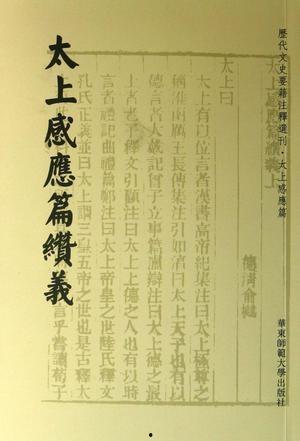 歷代文史要籍注釋選刊·太上感應篇
華東師範大學出版社
太上感應篇纘義
太上感應篇纘義上
德清俞樾
太上曰
太上有以位言者漢書高帝紀集注曰太上極尊之
稱淮南厲王長傳集注引如淳曰太上天子也有以
德言者大戴記曾子立事篇盧辯注曰太上德之最
上者老子釋文引顧注曰太上上德之人也有以時
言者禮記曲禮篇鄭注曰太上帝皇之世陸氏釋文
孔氏正義並曰太上謂三皇五帝之世也是古釋太
言乎嘗讀荀子